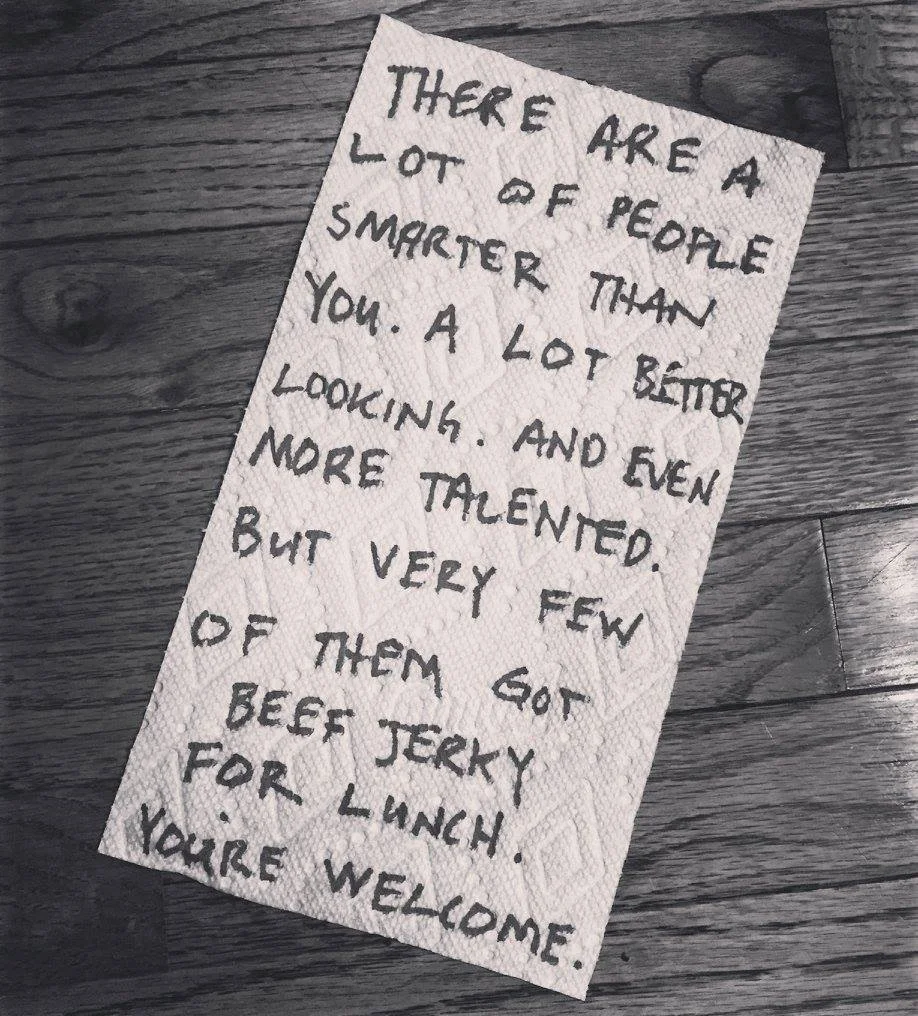 THERE ARE A
LOT OF PEOPLE
SMARTER THAN
YOU. A LOT BETTER
LOOKING. AND EVEN
MORE TALENTED.
BUT VERY FEW
OF THEM GOT
BEEF JERKY
FOR LUNCH.
YOU'RE WELCOME.